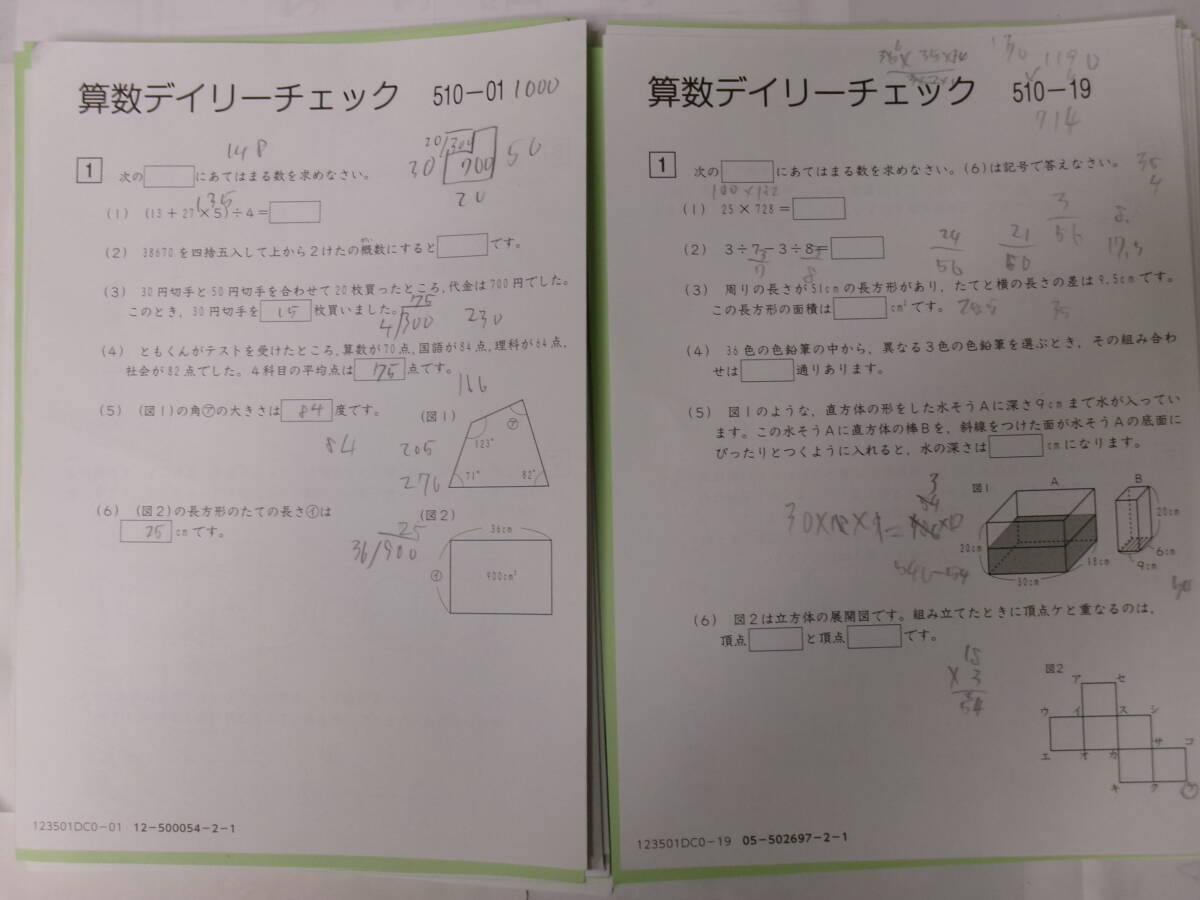 算数デイリーチェック 510-01 1000
148
20 300
30 700 50
20
1 次の にあてはまる数を求めなさい。
135
(1) (13+27×5)÷4=
(2) 38670を四捨五入して上から2けたの概数にすると です。
がい
(3) 30円切手と50円切手を合わせて20枚買ったところ,代金は700円でした。
このとき,30円切手を 15 枚買いました。
75
4/300 230
(4) ともくんがテストを受けたところ,算数が70点,国語が84点,理科が64点,
社会が82点でした。4科目の平均点は 75 点です。
116
(5) (図1)の角㋐の大きさは 84 度です。
(図1)
84 205
276
㋐
123°
71° 82°
(6) (図2)の長方形のたての長さ㋑は
25 cmです。
(図2)
25
36/900
36cm
㋑ 900cm²
123501DC0-01 12-500054-2-1
算数デイリーチェック 510-19
1190
714
1 次の にあてはまる数を求めなさい。(6)は記号で答えなさい。
35
4
100×132
(1) 25×728=
3
56
(2) 3÷7-3÷8=
3
7
3
8
24
56
21
56
17.5
(3) 周りの長さが51cmの長方形があり,たてと横の長さの差は9.5cmです。
この長方形の面積は cm²です。
35
(4) 36色の色鉛筆の中から,異なる3色の色鉛筆を選ぶとき,その組み合わ
せは 通りあります。
(5) 図1のような,直方体の形をした水そうAに深さ9cmまで水が入ってい
ます。この水そうAに直方体の棒Bを,斜線をつけた面が水そうAの底面に
ぴったりとつくように入れると,水の深さは cmになります。
3
54
図1
A B
20cm 30cm 18cm
20cm 6cm 9cm
540-54
(6) 図2は立方体の展開図です。組み立てたときに頂点ケと重なるのは,
頂点 と頂点 です。
18
×3
54
図2
ア セ
ウ イ ス シ
エ オ カ サ コ
キ ク ケ
123501DC0-19 05-502697-2-1